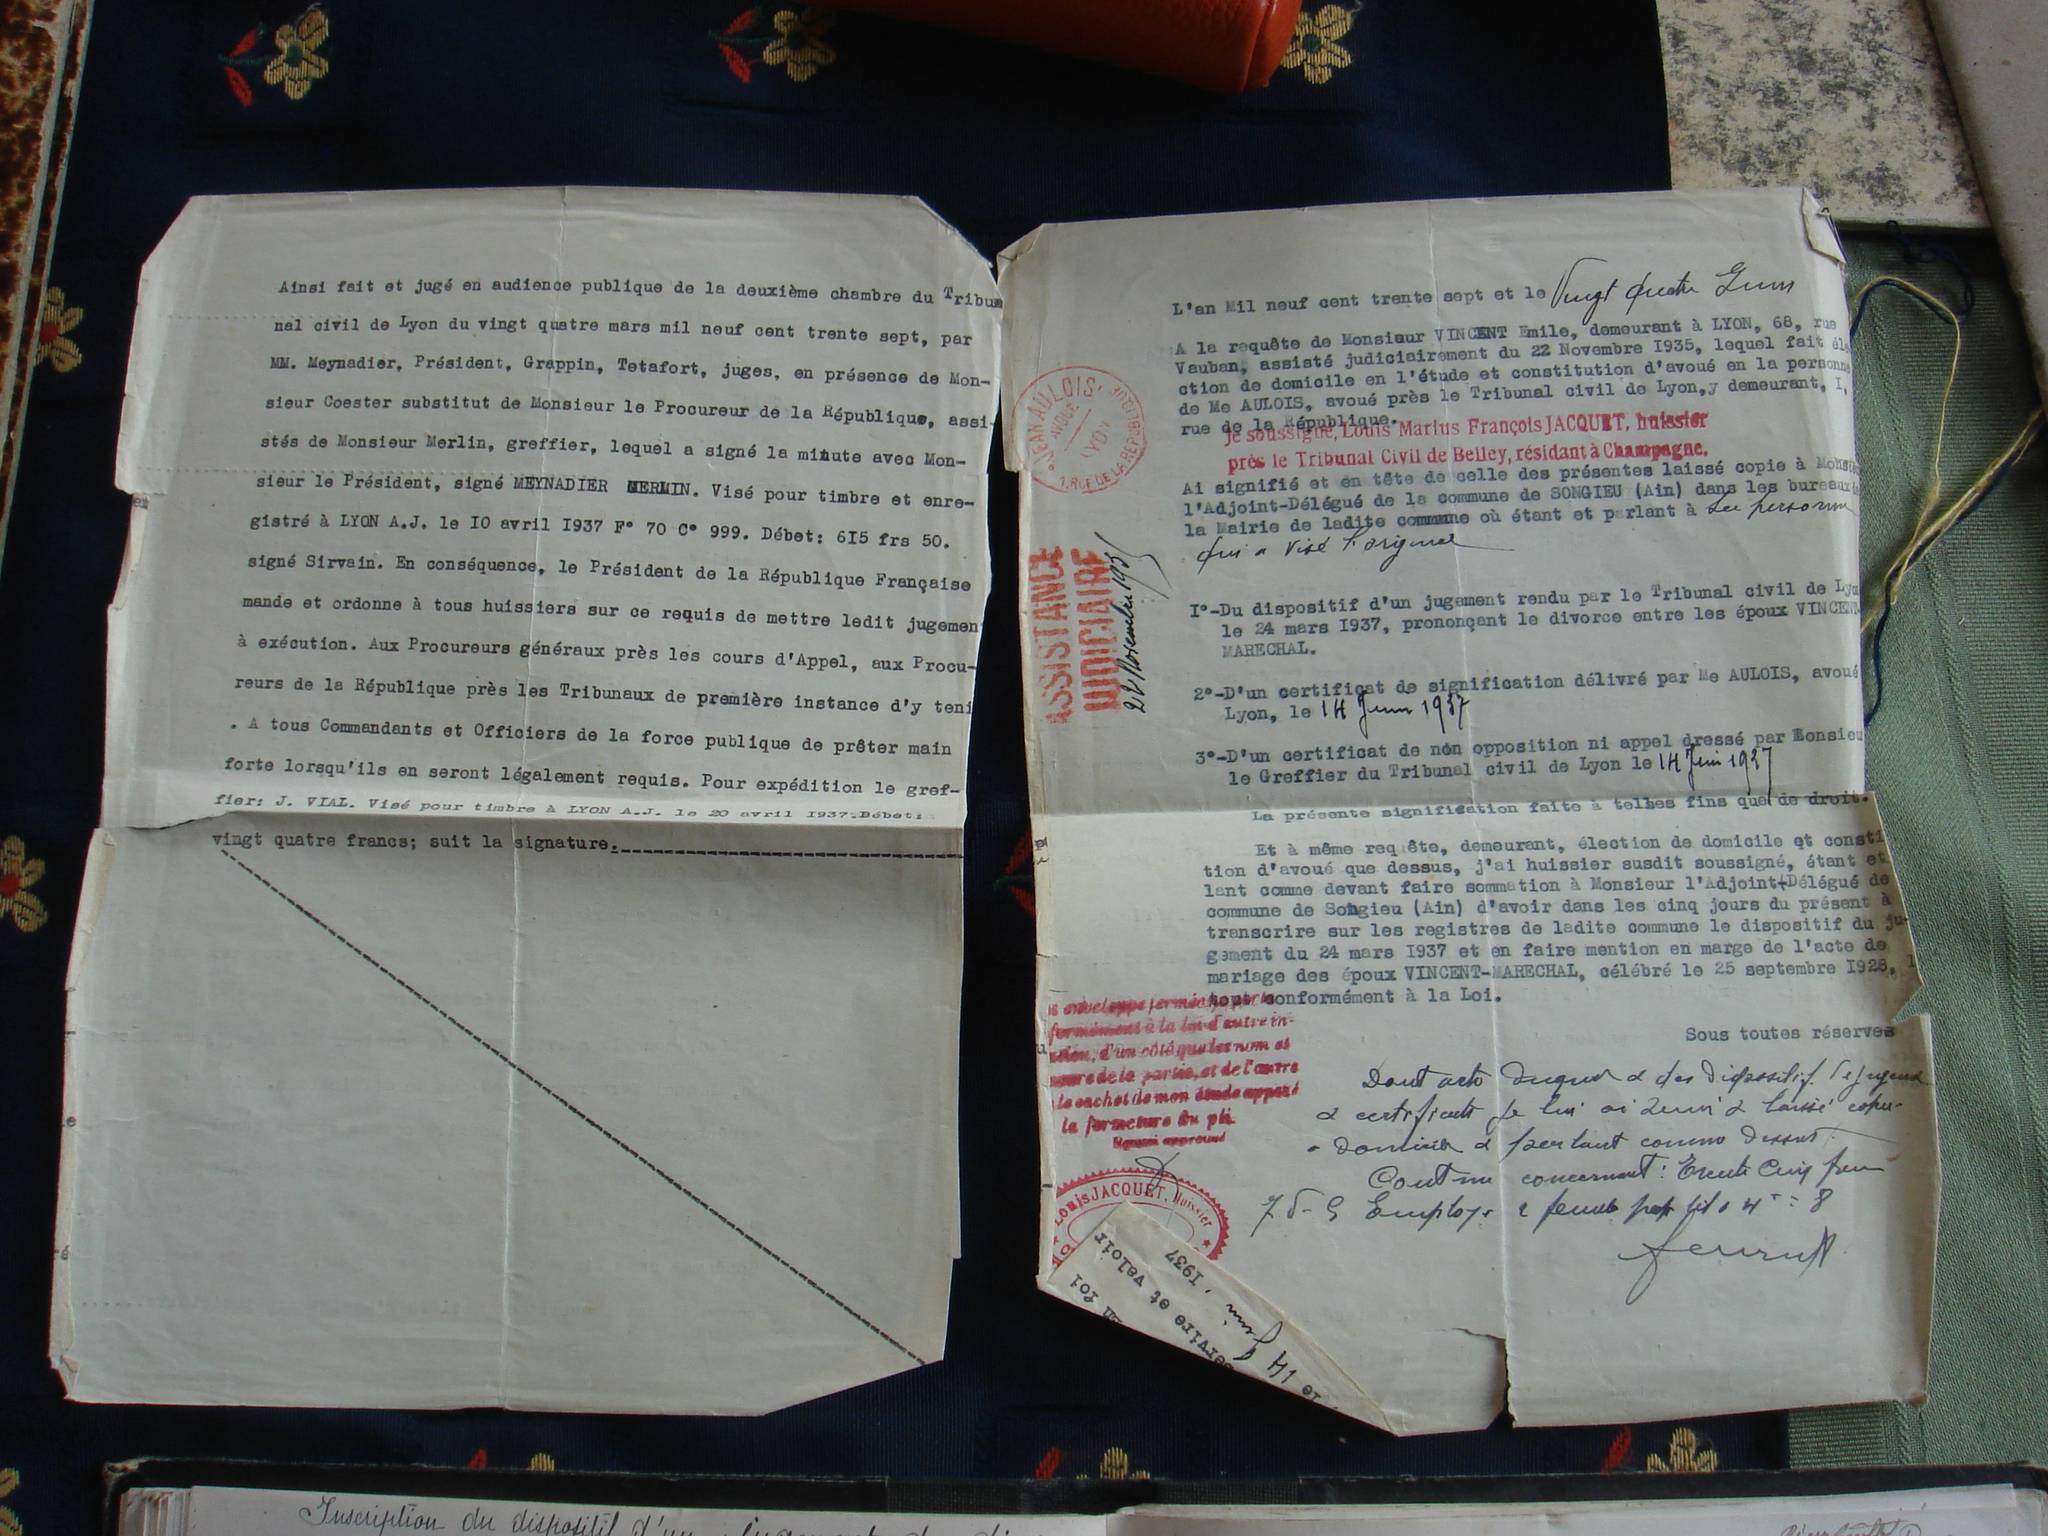 Ainsi fait et jugé en audience publique de la deuxième chambre du Tribu
nal civil de Lyon du vingt quatre mars mil neuf cent trente sept, par
MM. Meynadier, Président, Grappin, Tetafort, juges, en présence de Mon-
sieur Coester substitut de Monsieur le Procureur de la République, assi-
stés de Monsieur Merlin, greffier, lequel a signé la minute avec Mon-
sieur le Président, signé MEYNADIER MERLIN. Visé pour timbre et enre-
gistré à LYON A.J. le I0 avril I937 F° 70 C° 999. Débet: 6I5 frs 50.
signé Sirvain. En conséquence, le Président de la République Française
mande et ordonne à tous huissiers sur ce requis de mettre ledit jugemen
à exécution. Aux Procureurs généraux près les cours d'Appel, aux Procu-
reurs de la République près les Tribunaux de première instance d'y teni
. A tous Commandants et Officiers de la force publique de prêter main
forte lorsqu'ils en seront légalement requis. Pour expédition le gref-
fier: J. VIAL. Visé pour timbre à LYON A.J. le 20 avril I937.Débet:
vingt quatre francs; suit la signature.
L'an Mil neuf cent trente sept et le Vingt quatre Juin
A la requête de Monsieur VINCENT Emile, demeurant à LYON, 68, rue
Vauban, assisté judiciairement du 22 Novembre I935, lequel fait éle
ction de domicile en l'étude et constitution d'avoué en la personne
de Me AULOIS, avoué près le Tribunal civil de Lyon,y demeurant, I,
rue de la République.
je soussigné, Louis Marius François JACQUET, huissier
près le Tribunal Civil de Belley, résidant à Champagne.
Ai signifié et en tête de celle des présentes laissé copie à Monsie
l'Adjoint-Délégué de la commune de SONGIEU (Ain) dans les bureaux de
la Mairie de ladite commune où étant et parlant à sa personne
qui a visé l'original
I°-Du dispositif d'un jugement rendu par le Tribunal civil de Lyon
le 24 mars I937, prononçant le divorce entre les époux VINCENT-
MARECHAL.
2°-D'un certificat de signification délivré par Me AULOIS, avoué
Lyon, le 14 Juin 1937
3°-D'un certificat de non opposition ni appel dressé par Monsieu
le Greffier du Tribunal civil de Lyon le 14 Juin 1937
La présente signification faite à telles fins que de droit.
Et à même requête, demeurant, élection de domicile et consti
tion d'avoué que dessus, j'ai huissier susdit soussigné, étant et
lant comme devant faire sommation à Monsieur l'Adjoint-Délégué de
commune de Songieu (Ain) d'avoir dans les cinq jours du présent à
transcrire sur les registres de ladite commune le dispositif du ju-
gement du 24 mars I937 et en faire mention en marge de l'acte de
mariage des époux VINCENT-MARECHAL, célébré le 25 septembre I928, l
tout conformément à la Loi.
Sous toutes réserves
Dont acte duquel & des dispositif de jugement
& certificats je lui ai remis & laissé copie
à domicile & parlant comme dessus.
Coût concernant: Trente cinq
Employé 2
JEAN AULOIS
AVOUÉ
LYON
1, RUE DE LA RÉPUBLIQUE
ASSISTANCE
JUDICIAIRE
22 Novembre 1935
enveloppe fermée
formément à la loi d'autre in-
d'un côté que les nom et
de la partie, et de l'autre
le cachet de mon étude apposé
la fermeture du pli.
Louis JACQUET, Huissier
foi
servire et valoir
le 14 Juin I937
Inscription du dispositif d'un